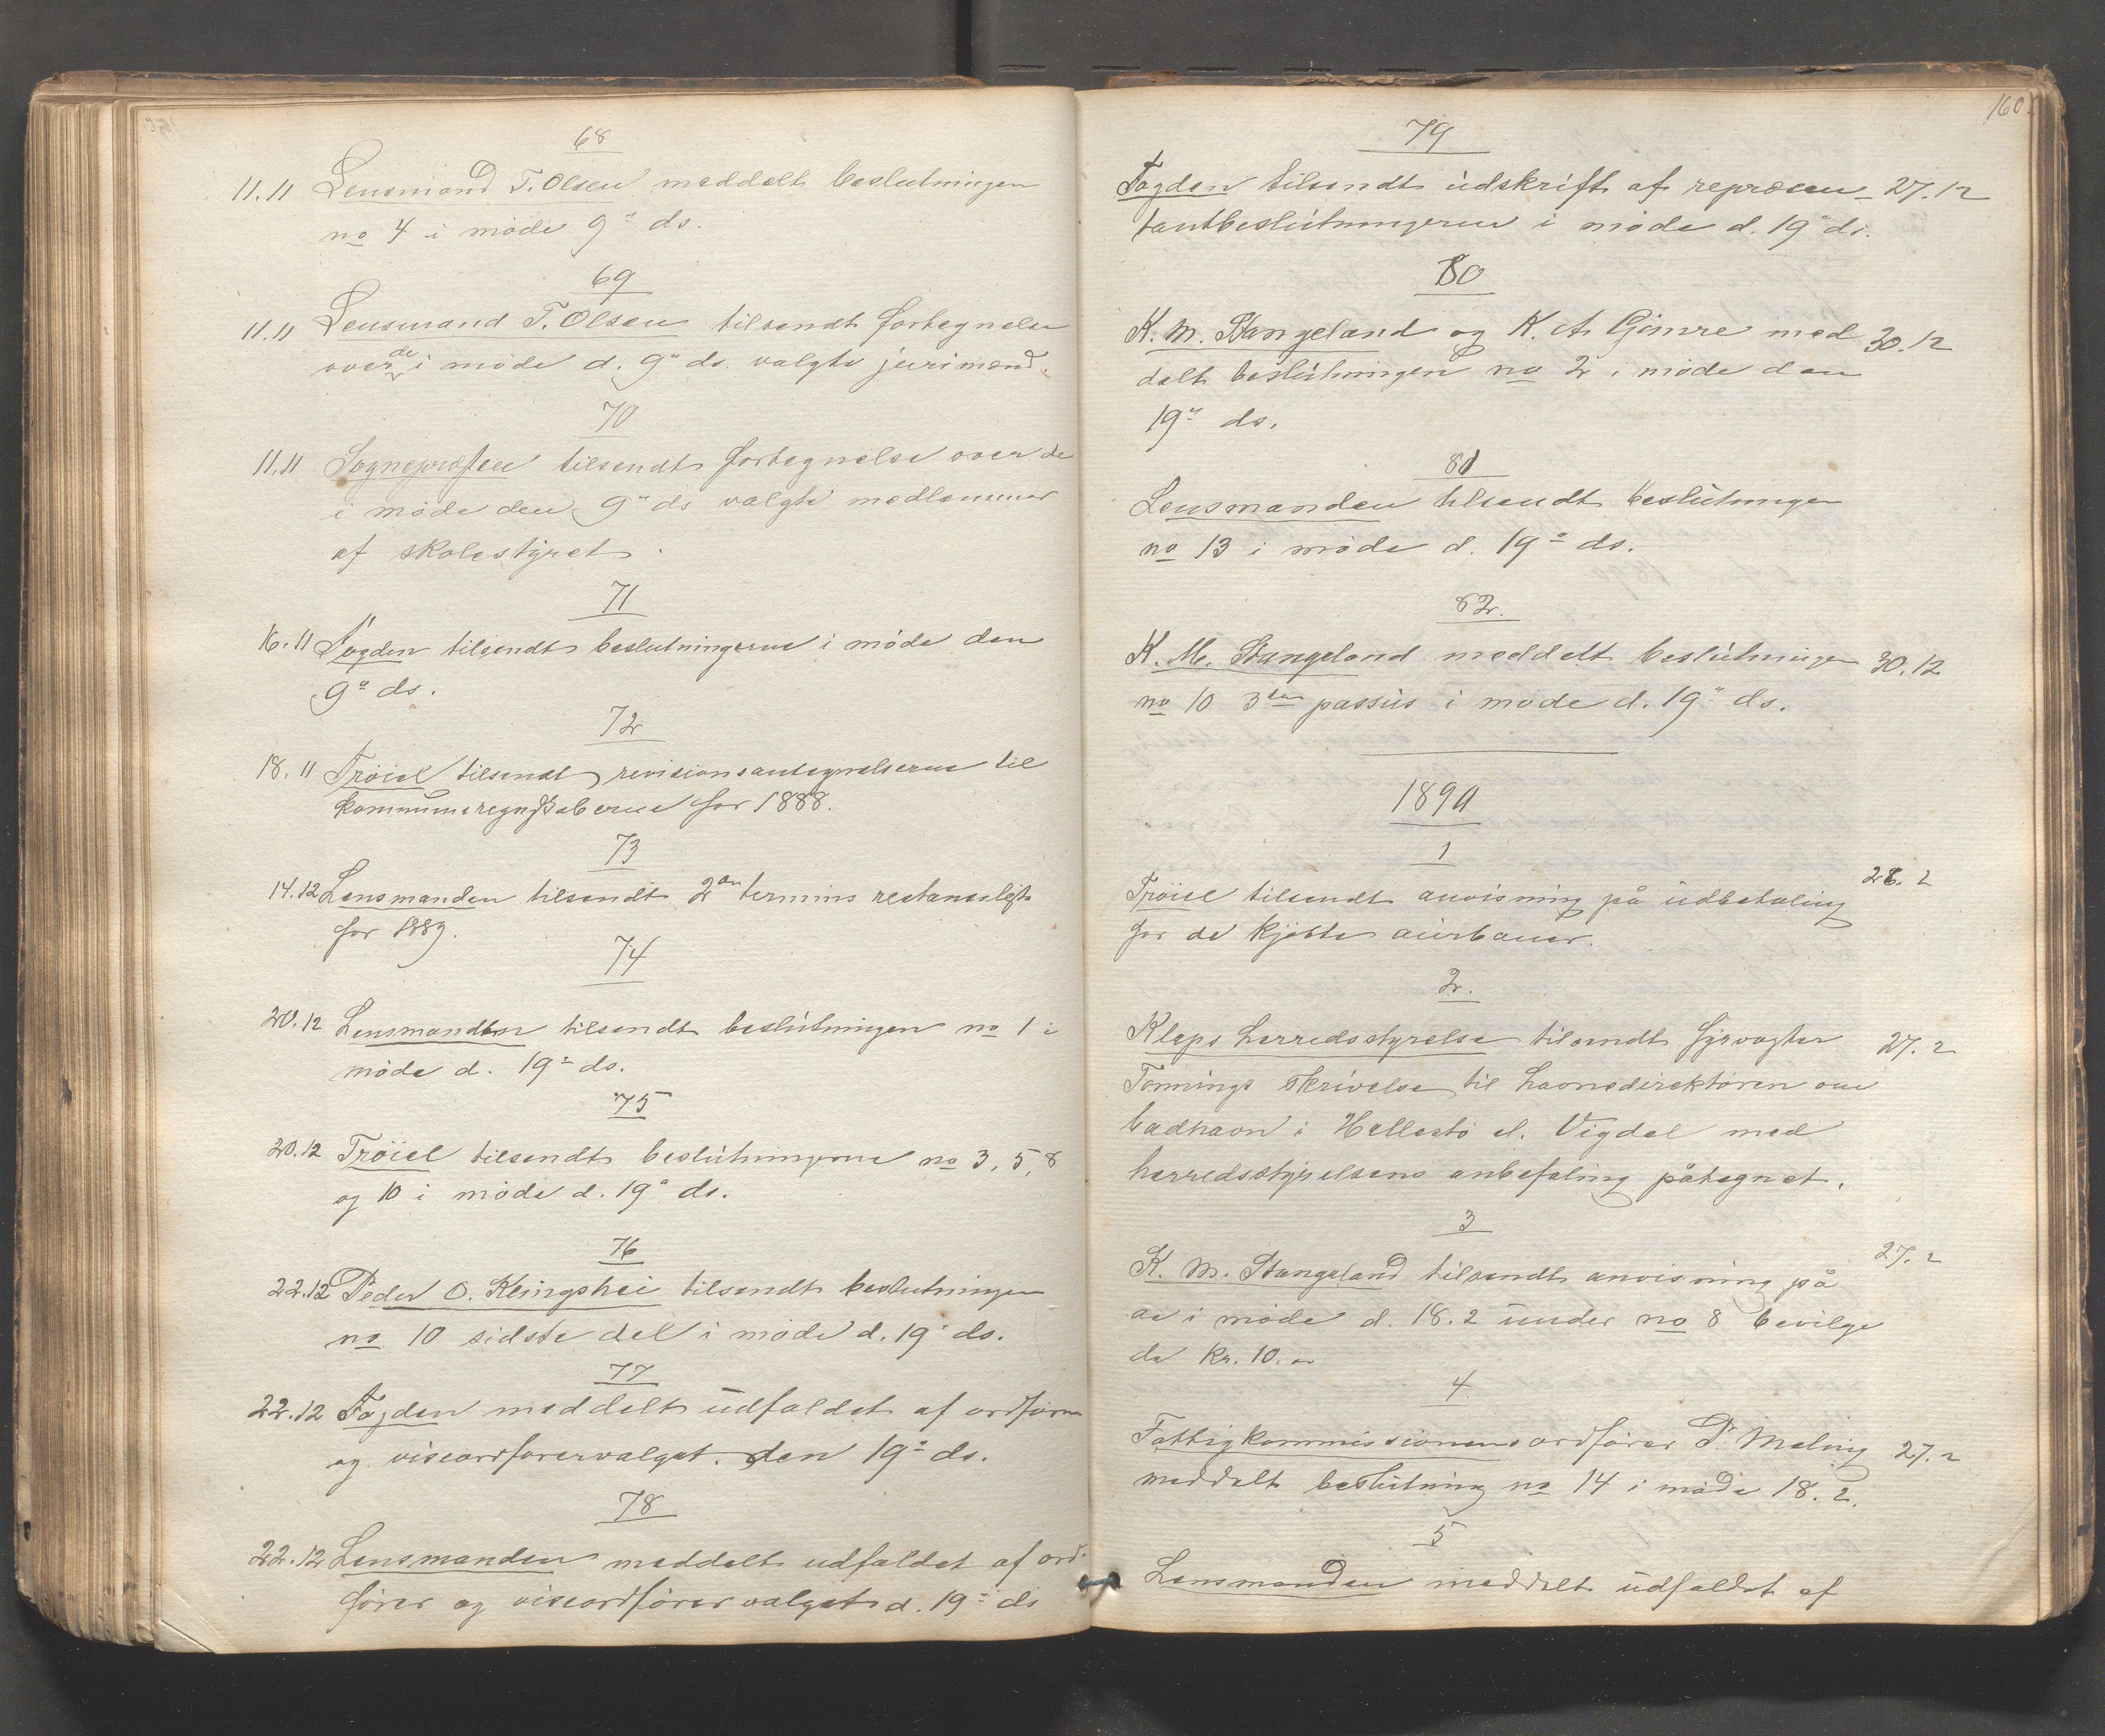 68
11.11 Lensmand T. Olsen meddelt beslutningen
no 4 i møde 9de ds.
69
11.11 Lensmand T. Olsen tilsendt fortegnelse
over de i møde d. 9de ds. valgte jurimænd.
70
11.11 Sognepræsten tilsendt fortegnelse over de
i møde den 9de ds valgte medlemmer
af skolestyret.
71
16.11 Fogden tilsendt beslutningerne i møde den
9de ds.
72
18.11 Trøiel tilsendt revisionsantegnelserne til
kommuneregnskaberne for 1888.
73
14.12 Lensmanden tilsendt 2den termins restanseliste
for 1889.
74
20.12 Lensmanden tilsendt beslutningen no 1 i
møde d. 19de ds.
75
20.12 Trøiel tilsendt beslutningerne no 3, 5, 8
og 10 i møde d. 19de ds.
76
22.12 Peder O. Kleingshei tilsendt beslutningen
no 10 sidste del i møde d. 19de ds.
77
22.12 Fogden meddelt udfaldet af ordfører
og viseordførervalget den 19de ds.
78
22.12 Lensmanden meddelt udfaldet af ord-
fører og viseordførervalget d. 19de ds
160.
79
Fogden tilsendt udskrift af repræsen- 27.12
tantbeslutningerne i møde d. 19de ds.
80
K. M. Stangeland og K. A. Gimre med 30.12
delt beslutningen no 2 i møde den
19de ds.
81
Lensmanden tilsendt beslutningen
no 13 i møde d. 19de ds.
82.
K. M. Stangeland meddelt beslutningen 30.12
no 10 3die passus i møde d. 19de ds.
1890
1
Trøiel tilsendt anvisning på udbetaling 26.2
for de kjøbte
2.
Kleps herredsstyrelse tilsendt fyrvogter 27.2
Tonnings skrivelse til havnedirektøren om
baadhavn i Hellestø el. Vigdel med
herredsstyrelsens anbefaling påtegnet.
3
K. M. Stangeland tilsendt anvisning på 27.2
de i møde d. 18.2 under no 8 bevilge
de kr. 10.00
4
Fattigkommissionens ordfører P. Meling 27.2
meddelt beslutning no 14 i møde 18.2.
5
Lensmanden meddelt udfaldet af